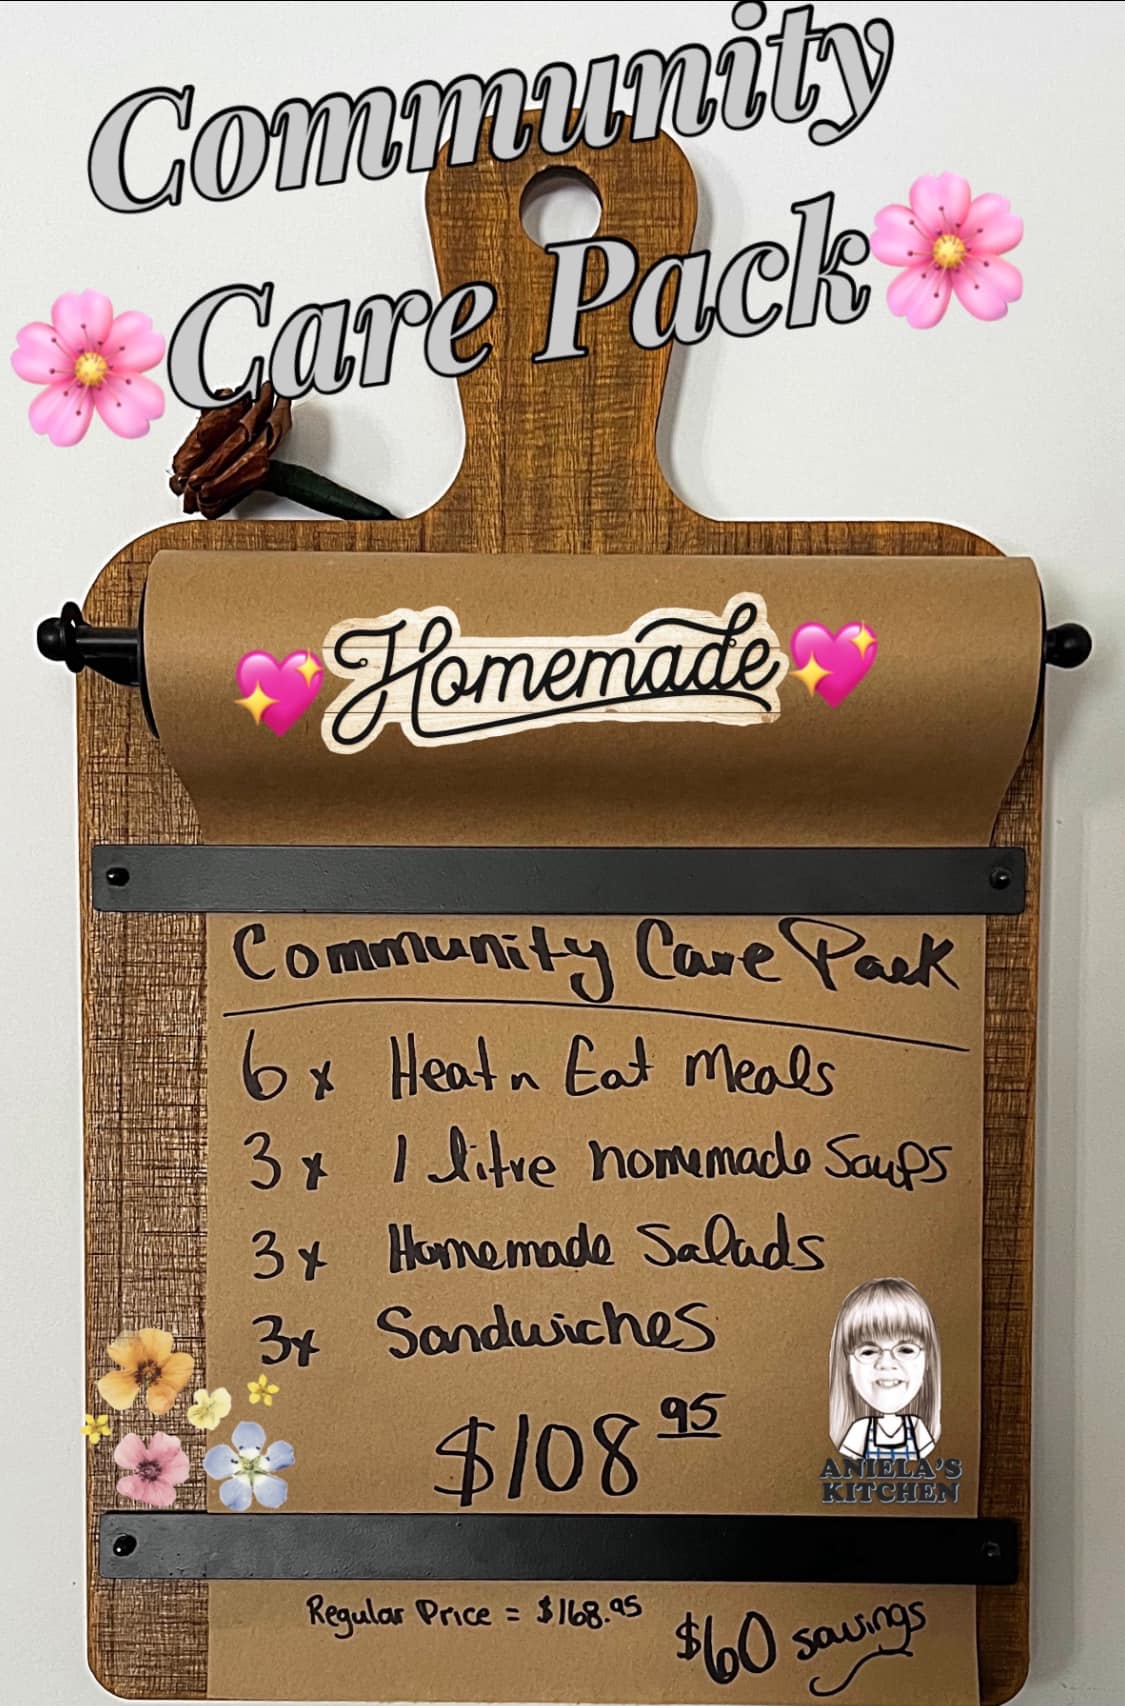 Community
Care Pack
Homemade
Community Care Pack
6x Heat n Eat Meals
3x 1 litre homemade Soups
3x Homemade Salads
3x Sandwiches
$108 95
ANIELA'S
KITCHEN
Regular Price = $168.95
$60 savings